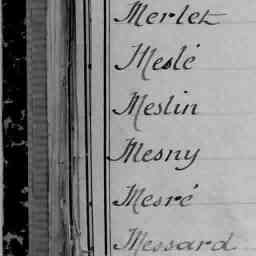 Merlet
Meslé
Meslin
Mesny
Mesré
Messard